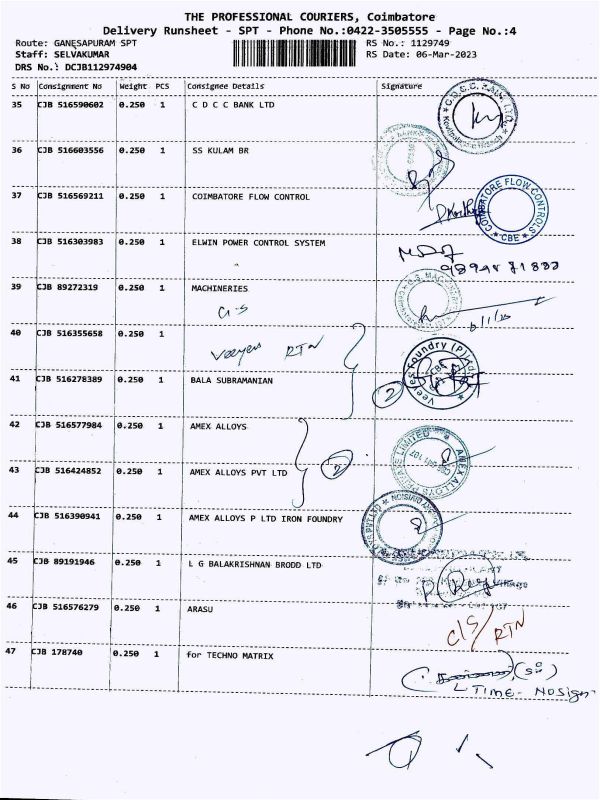 THE PROFESSIONAL COURIERS, Coimbatore
Delivery Runsheet - SPT - Phone No.:0422-3505555 - Page No.:4
Route: GANESAPURAM SPT RS No.: 1129749
Staff: SELVAKUMAR RS Date: 06-Mar-2023
DRS No.: DCJB112974904
S No Consignment No Weight PCS Consignee Details Signature
35 CJB 516590602 0.250 1 C D C C BANK LTD
36 CJB 516603556 0.250 1 SS KULAM BR
37 CJB 516569211 0.250 1 COIMBATORE FLOW CONTROL
COIMBATORE FLOW CONTROLS
CBE
38 CJB 516303983 0.250 1 ELWIN POWER CONTROL SYSTEM
39 CJB 89272319 0.250 1 MACHINERIES
G-S
40 CJB 516355658 0.250 1
Veeyes RTN
Veeyes Foundry (P) Ltd.
41 CJB 516278389 0.250 1 BALA SUBRAMANIAN
2
42 CJB 516577984 0.250 1 AMEX ALLOYS
AMEX ALLOYS PRIVATE LIMITED
43 CJB 516424852 0.250 1 AMEX ALLOYS PVT LTD
2
44 CJB 516390941 0.250 1 AMEX ALLOYS P LTD IRON FOUNDRY
45 CJB 89191946 0.250 1 L G BALAKRISHNAN BRODD LTD
46 CJB 516576279 0.250 1 ARASU
C/S/ RTN
47 CJB 178740 0.250 1 for TECHNO MATRIX
TIME- NOSign